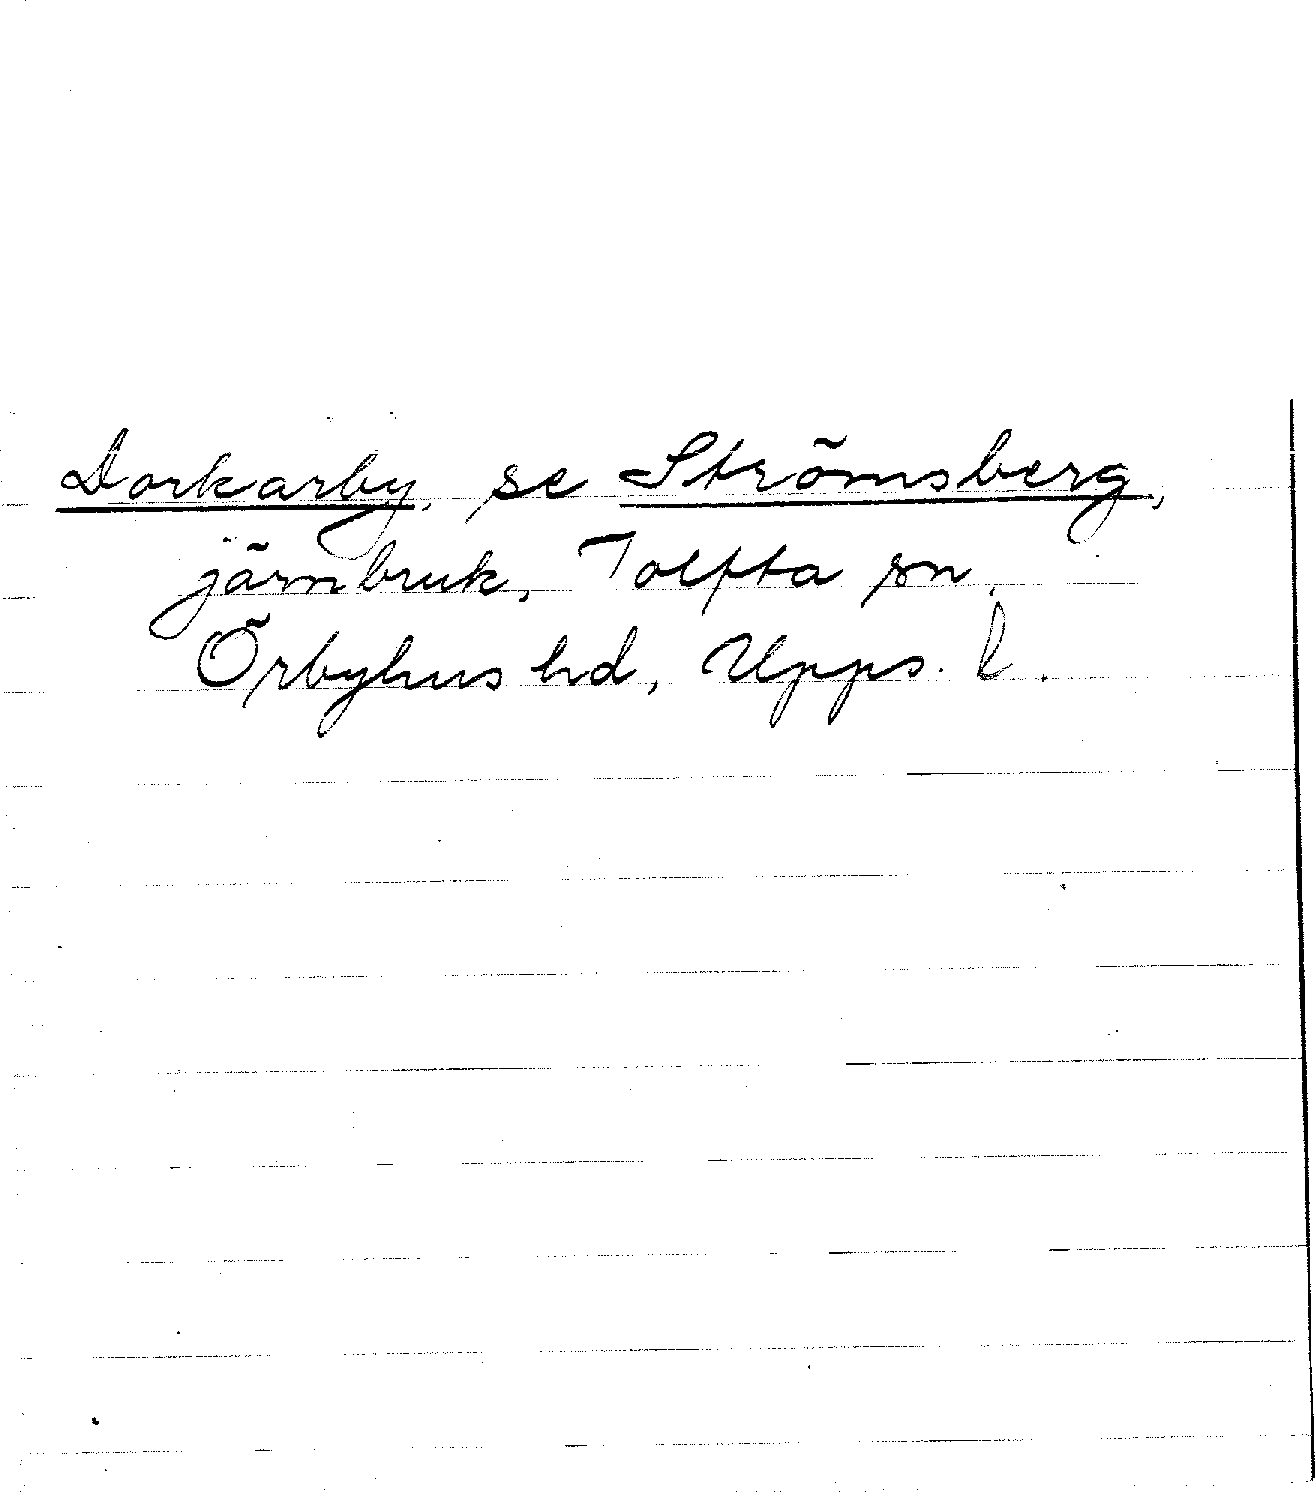 Dorkarby, se Strömsberg,
järnbruk, Tolfta sn,
Örbyhus hd, Upps. l.